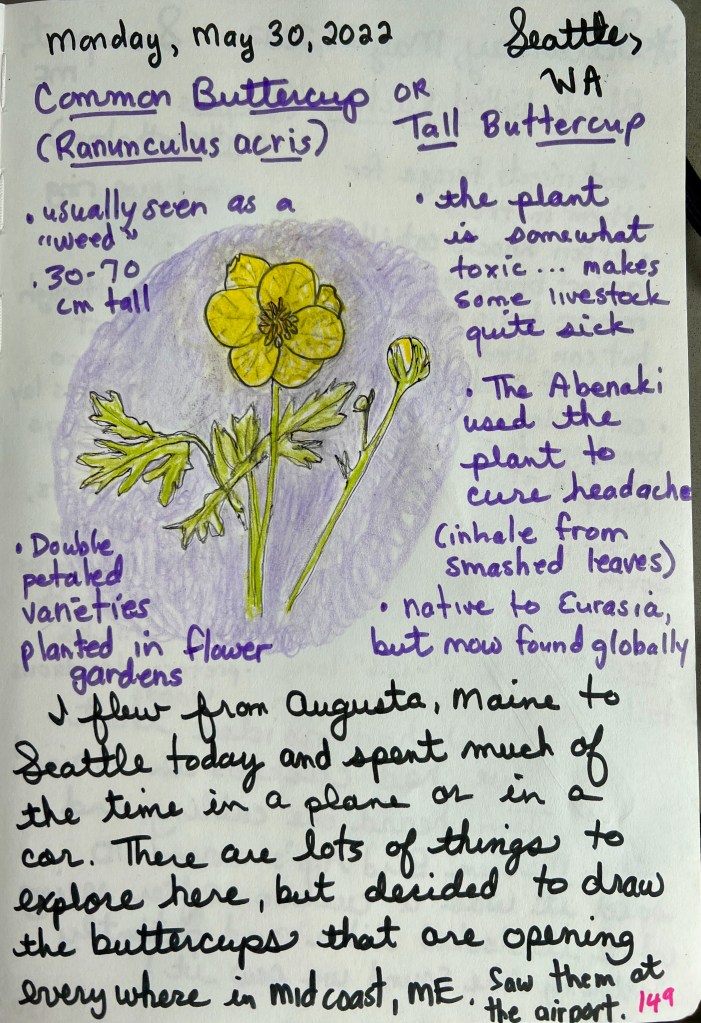 Monday, May 30, 2022 Seattle,
WA
Common Buttercup OR
(Ranunculus acris) Tall Buttercup
• usually seen as a
"weed"
• 30-70
cm tall
• the plant
is somewhat
toxic... makes
some livestock
quite sick
• The Abenaki
used the
plant to
cure headache
(inhale from
smashed leaves)
• Double
petaled
varieties
planted in flower
gardens
• native to Eurasia,
but now found globally
I flew from Augusta, Maine to
Seattle today and spent much of
the time in a plane or in a
car. There are lots of things to
explore here, but decided to draw
the buttercups that are opening
everywhere in midcoast, ME. Saw them at
the airport. 149